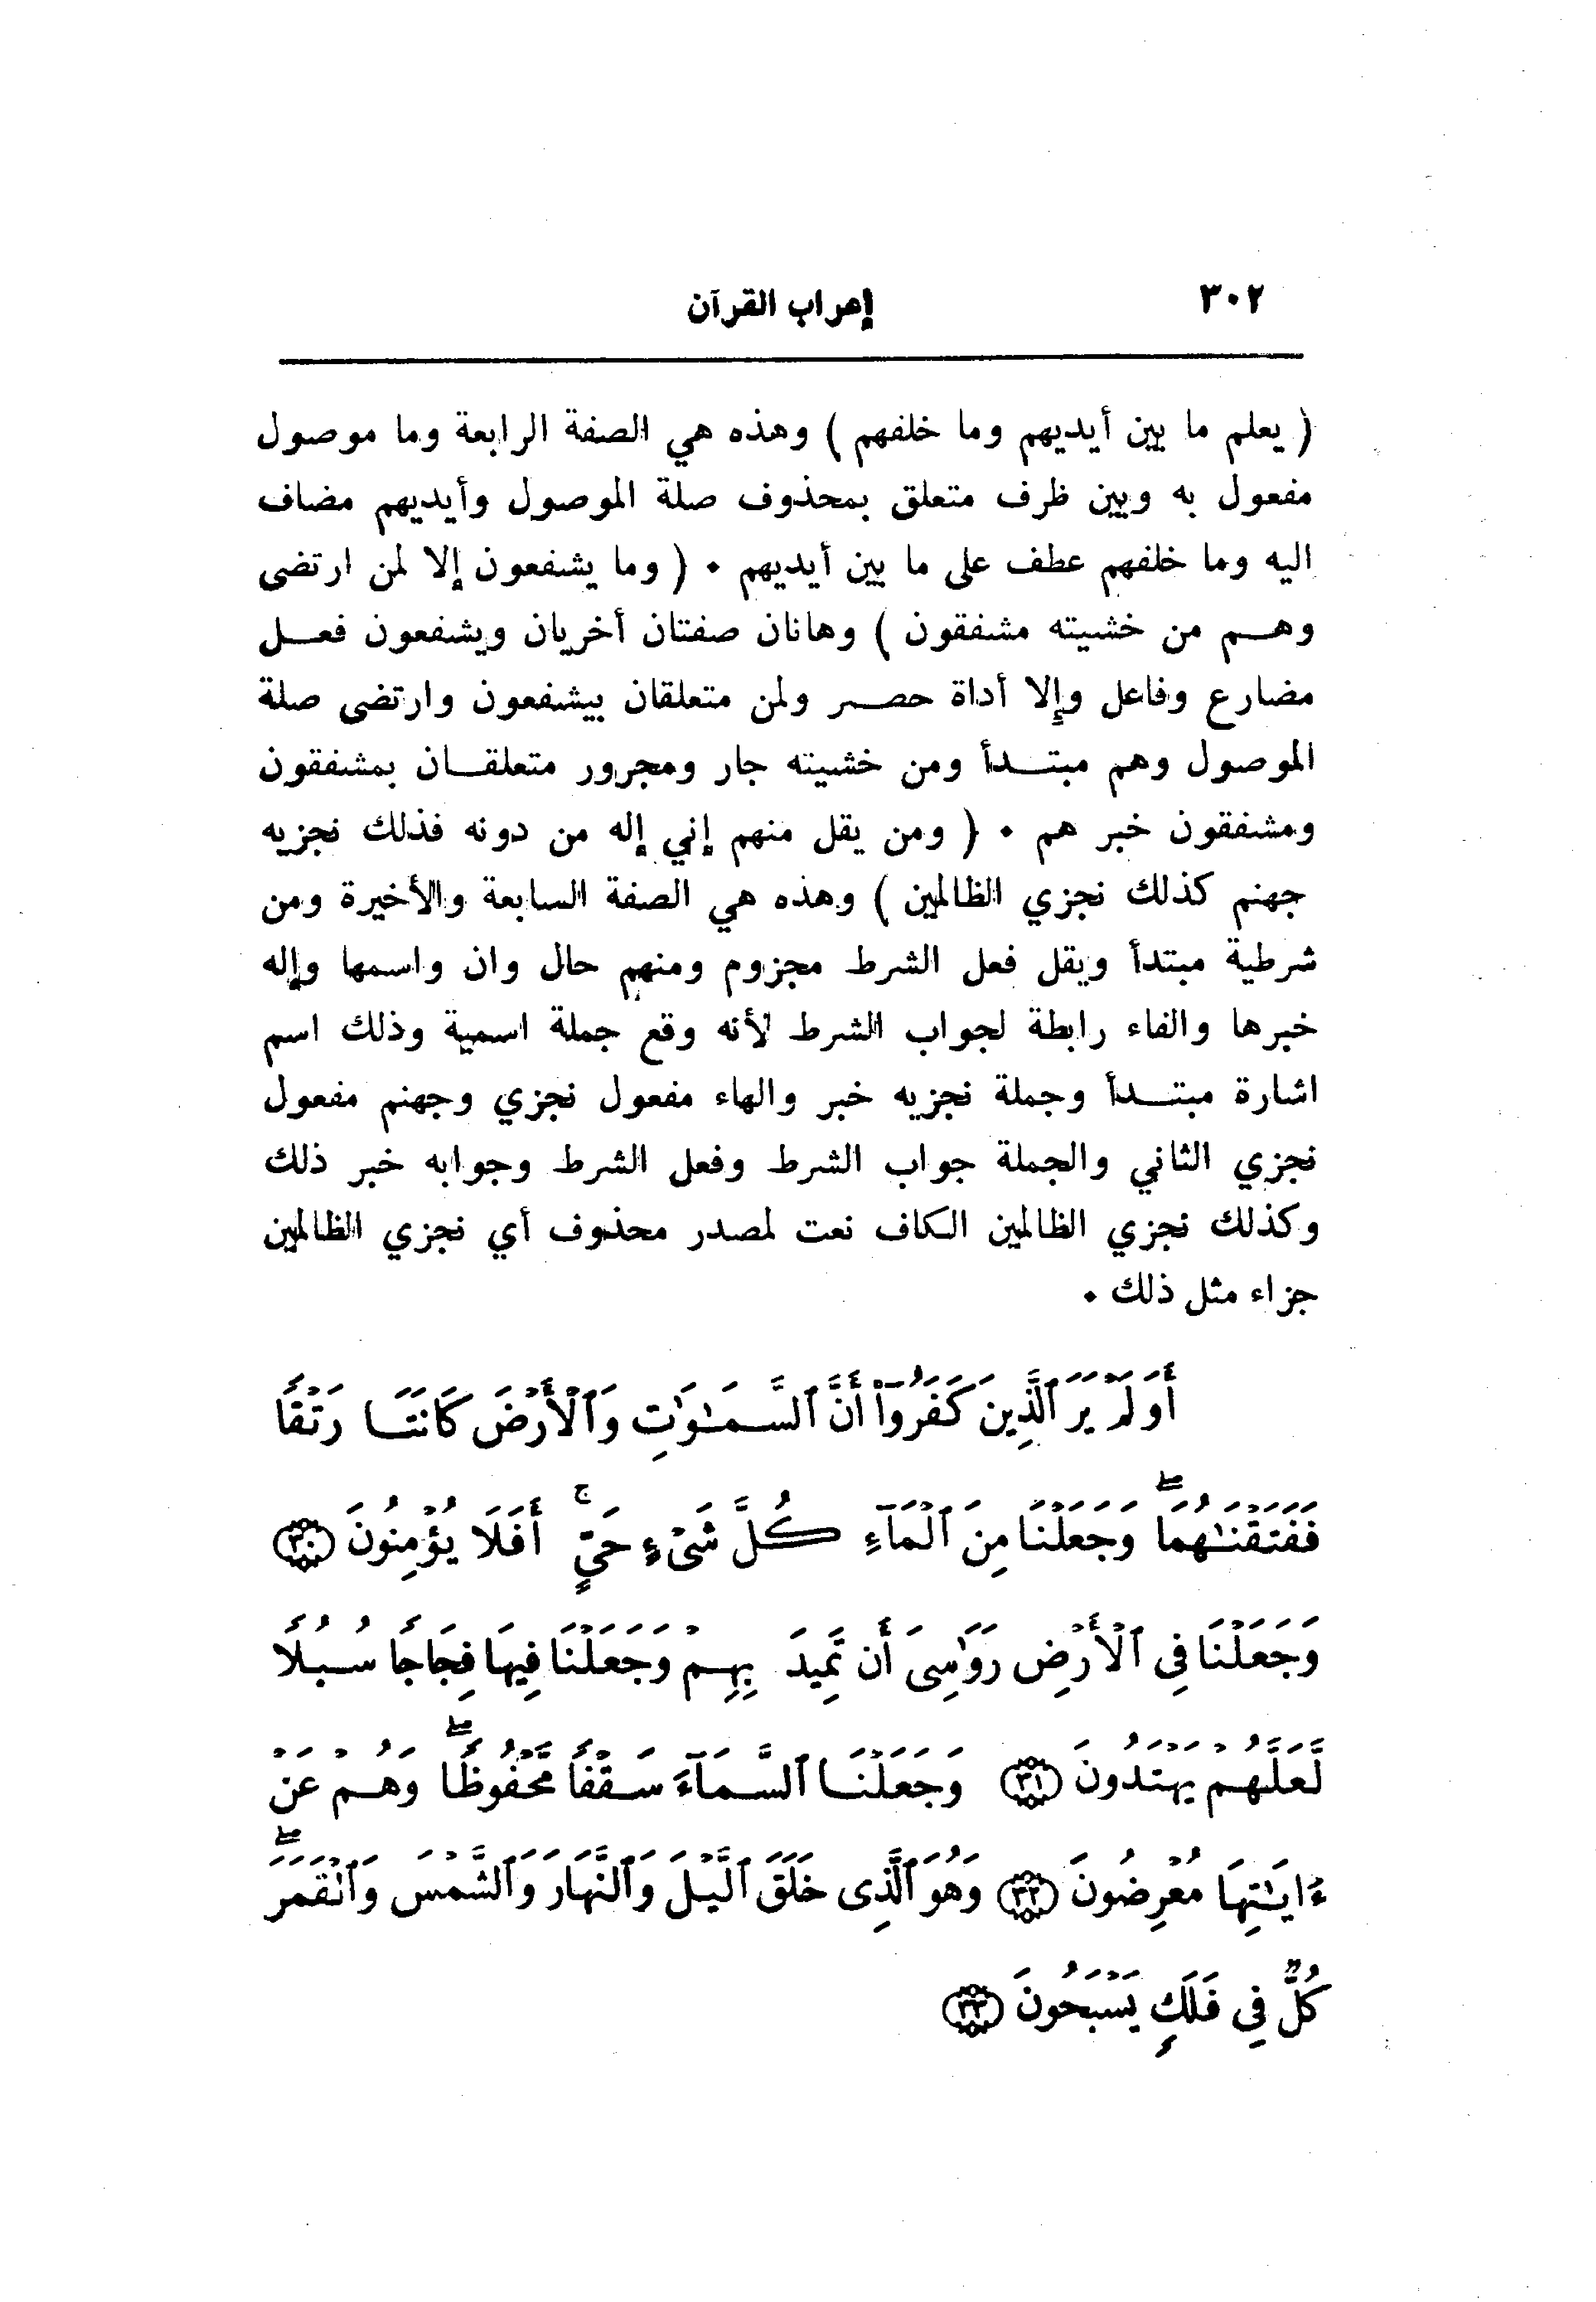 ٣٠٢
إعراب القرآن
( يعلم ما بين أيديهم وما خلفهم ) وهذه هي الصفة الرابعة وما موصول
مفعول به وبين ظرف متعلق بمحذوف صلة الموصول وأيديهم مضاف
اليه وما خلفهم عطف على ما بين أيديهم . ( وما يشفعون إلا لمن ارتضى
وهــم من خشيته مشفقون ) وهانان صفتان أخريان ويشفعون فعــل
مضارع وفاعل وإلا أداة حصــر ولمن متعلقان بيشفعون وارتضى صلة
الموصول وهم مبتــدأ ومن خشيته جار ومجرور متعلقــان بمشفقون
ومشفقون خبر هم . ( ومن يقل منهم إني إله من دونه فذلك نجزيه
جهنم كذلك نجزي الظالمين ) وهذه هي الصفة السابعة والأخيرة ومن
شرطية مبتدأ ويقل فعل الشرط مجزوم ومنهم حال وان واسمها وإله
خبرها والفاء رابطة لجواب الشرط لأنه وقع جملة اسمية وذلك اسم
اشارة مبتــدأ وجملة نجزيه خبر والهاء مفعول نجزي وجهنم مفعول
نجزي الثاني والجملة جواب الشرط وفعل الشرط وجوابه خبر ذلك
وكذلك نجزي الظالمين الكاف نعت لمصدر محذوف أي نجزي الظالمين
جزاء مثل ذلك .
أَوَلَمْ يَرَ ٱلَّذِينَ كَفَرُوٓا۟ أَنَّ ٱلسَّمَـٰوَٰتِ وَٱلْأَرْضَ كَانَتَا رَتْقًا
فَفَتَقْنَـٰهُمَا ۖ وَجَعَلْنَا مِنَ ٱلْمَآءِ كُلَّ شَىْءٍ حَىٍّ ۚ أَفَلَا يُؤْمِنُونَ ٣٠
وَجَعَلْنَا فِى ٱلْأَرْضِ رَوَٰسِىَ أَن تَمِيدَ بِهِمْ وَجَعَلْنَا فِيهَا فِجَاجًا سُبُلًا
لَّعَلَّهُمْ يَهْتَدُونَ ٣١ وَجَعَلْنَا ٱلسَّمَآءَ سَقْفًا مَّحْفُوظًا ۖ وَهُمْ عَنْ
ءَايَـٰتِهَا مُعْرِضُونَ ٣٢ وَهُوَ ٱلَّذِى خَلَقَ ٱلَّيْلَ وَٱلنَّهَارَ وَٱلشَّمْسَ وَٱلْقَمَرَ ۖ
كُلٌّ فِى فَلَكٍ يَسْبَحُونَ ٣٣